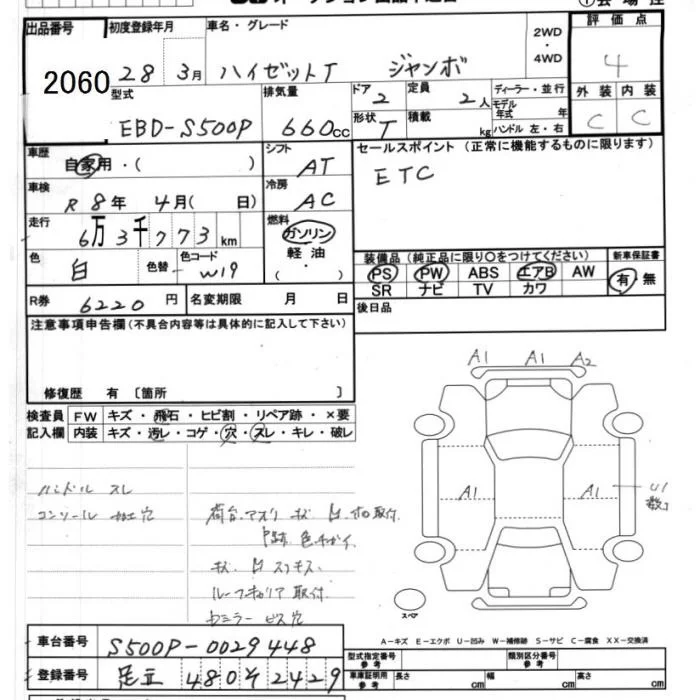 出品番号 初度登録年月 車名・グレード 2WD ・ 4WD 評価点
2060 28 3月 ハイゼットT ジャンボ 4
型式 排気量 ドア 2 定員 2人 ディーラー・並行 外装 内装
EBD-S500P 660cc 形状 T 積載 kg モデル年式 年 ハンドル 左・右 C C
車歴 自家用・( ) シフト AT セールスポイント (正常に機能するものに限ります)
車検 R 8年 4月( 日) 冷房 AC ETC
走行 6万3千773km 燃料 ガソリン
軽油・( )
色 白 色替 - 色コード W19 装備品 (純正品に限り○をつけてください) 新車保証書
PS PW ABS エアB AW 有・無
SR ナビ TV カワ
R券 6220円 名変期限 月 日 後日品
注意事項申告欄(不具合内容等は具体的に記入して下さい)
A1 A1 A2
修復歴 有 〔箇所 〕
検査員 FW キズ・飛石・ヒビ割・リペア跡・×要
記入欄 内装 キズ・汚レ・コゲ・穴・スレ・キレ・破レ
A1 A1 U1
数
ハンドル スレ
コンソール 加工穴 荷台アオリ 取付
色チガイ
ルーフキャリア 取付
ビス穴
スペア
車台番号 S500P-0029448
A-キズ E-エクボ U-凹み W-補修跡 S-サビ C-腐食 XX-交換済
登録番号 足立 480そ2429
型式指定番号 参考 類別区分番号 参考
車庫証明用 参考 長さ cm 幅 cm 高さ cm